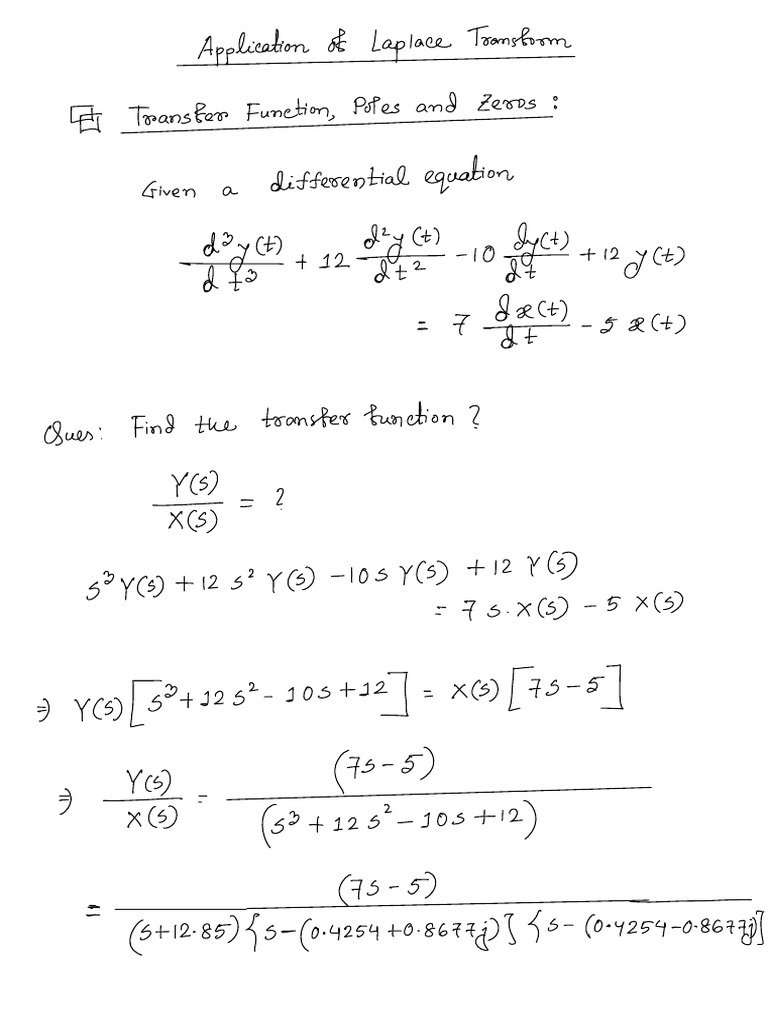 Application of Laplace Transform
Transfer Function, Poles and Zeros:
Given a differential equation
d³y(t)/dt³ + 12 d²y(t)/dt² - 10 dy(t)/dt + 12 y(t)
= 7 dx(t)/dt - 5 x(t)
Ques: Find the transfer function?
Y(s)/X(s) = ?
s³Y(s) + 12 s² Y(s) - 10s Y(s) + 12 Y(s)
= 7 s.X(s) - 5 X(s)
⇒ Y(s)[s³ + 12s² - 10s + 12] = X(s)[7s - 5]
⇒ Y(s)/X(s) = (7s - 5)/(s³ + 12s² - 10s + 12)
= (7s - 5)/(s+12.85){s-(0.4254+0.8677j)}{s-(0.4254-0.8677j)}